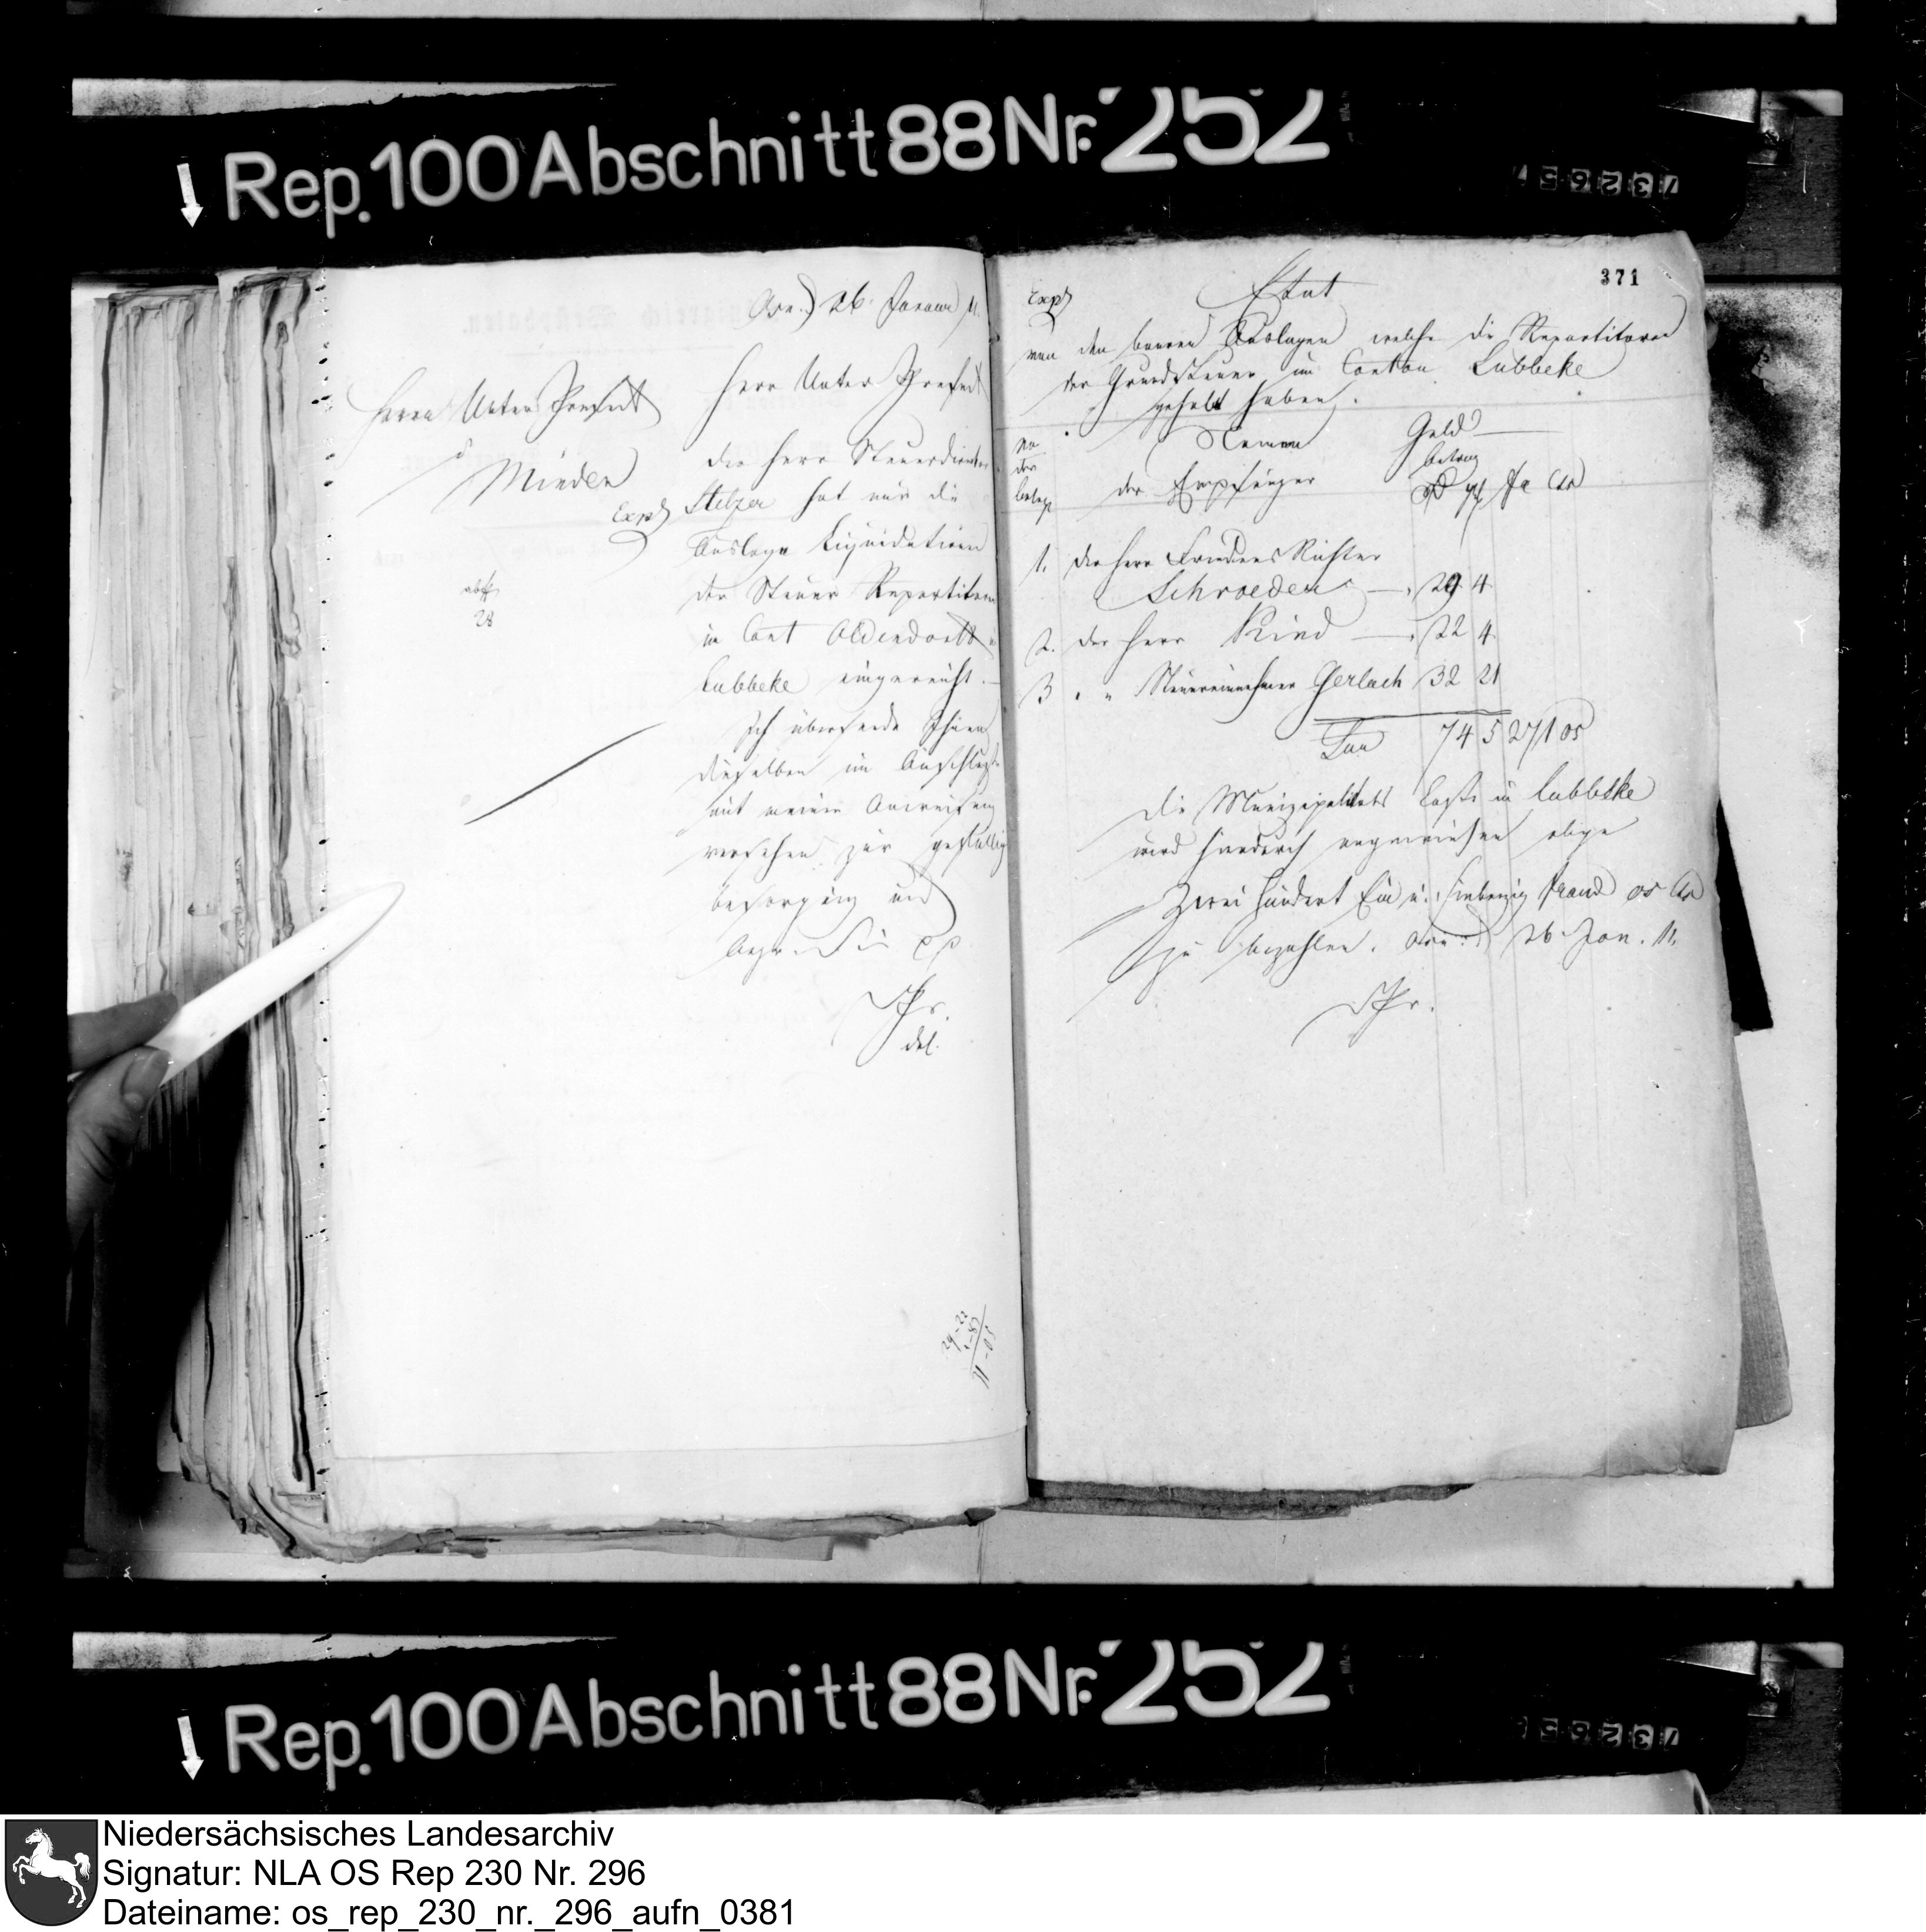 Rep. 100 Abschnitt 88 Nr. 252
Osn. 26. Januar 11.
Herrn Unter Praefect
Minden
Expd
abss
28
Herr Unter Praefect
der Herr Steuerdirector
Stelzer hat mir die
Auslage Liquidation
der Steuer Repartitoren
in Cant Oldendorff u
Lubbeke eingereicht. —
Ich übersende Ihnen
dieselben im Anschluße
mit meiner Anweisung
versehen zur gefälligen
besorgung und
Sr.
del.
24-22
371
Expd
Etat
von den baaren Auslagen welche die Repartitoren
der Grundsteuer im Canton Lubbeke
gehabt haben.
No
der
belege
Namen
der Empfänger
Geld
betrag
fr Ct
1. der Herr Friedens Richter
Schroeder — 20 4
2. der Herr Kind — 22 4
3 " " Steuereinnehmer Gerlach 32 21
Sua 74 5 271 05
Die Municipalitäts Casse in Lubbeke
wird hierdurch angewiesen obige
Zwei hundert Ein u. siebenzig Franc 05 Ct
zu bezahlen. Osn. 26 Jan. 11.
Rep. 100 Abschnitt 88 Nr. 252
Niedersächsisches Landesarchiv
Signatur: NLA OS Rep 230 Nr. 296
Dateiname: os_rep_230_nr._296_aufn_0381